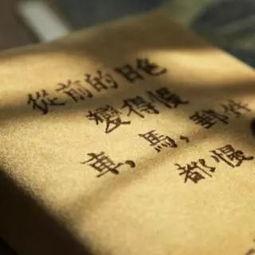 從前的日色
變得慢
車,馬,郵件
都慢